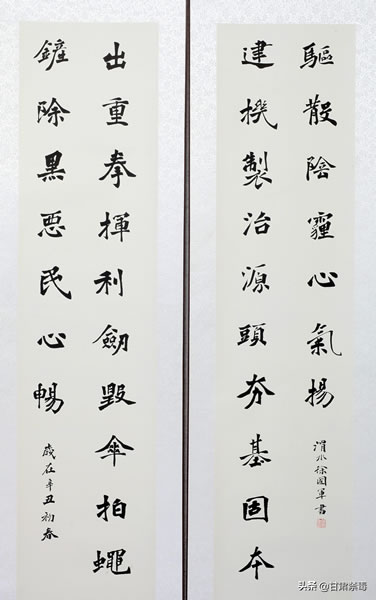 出重拳揮利劍毀傘拍蠅
鏟除黑惡民心暢
歲在辛丑初春
建機製治源頭夯基固本
驅散陰霾心氣揚
渭水徐國軍書
头条 @甘肃禁毒